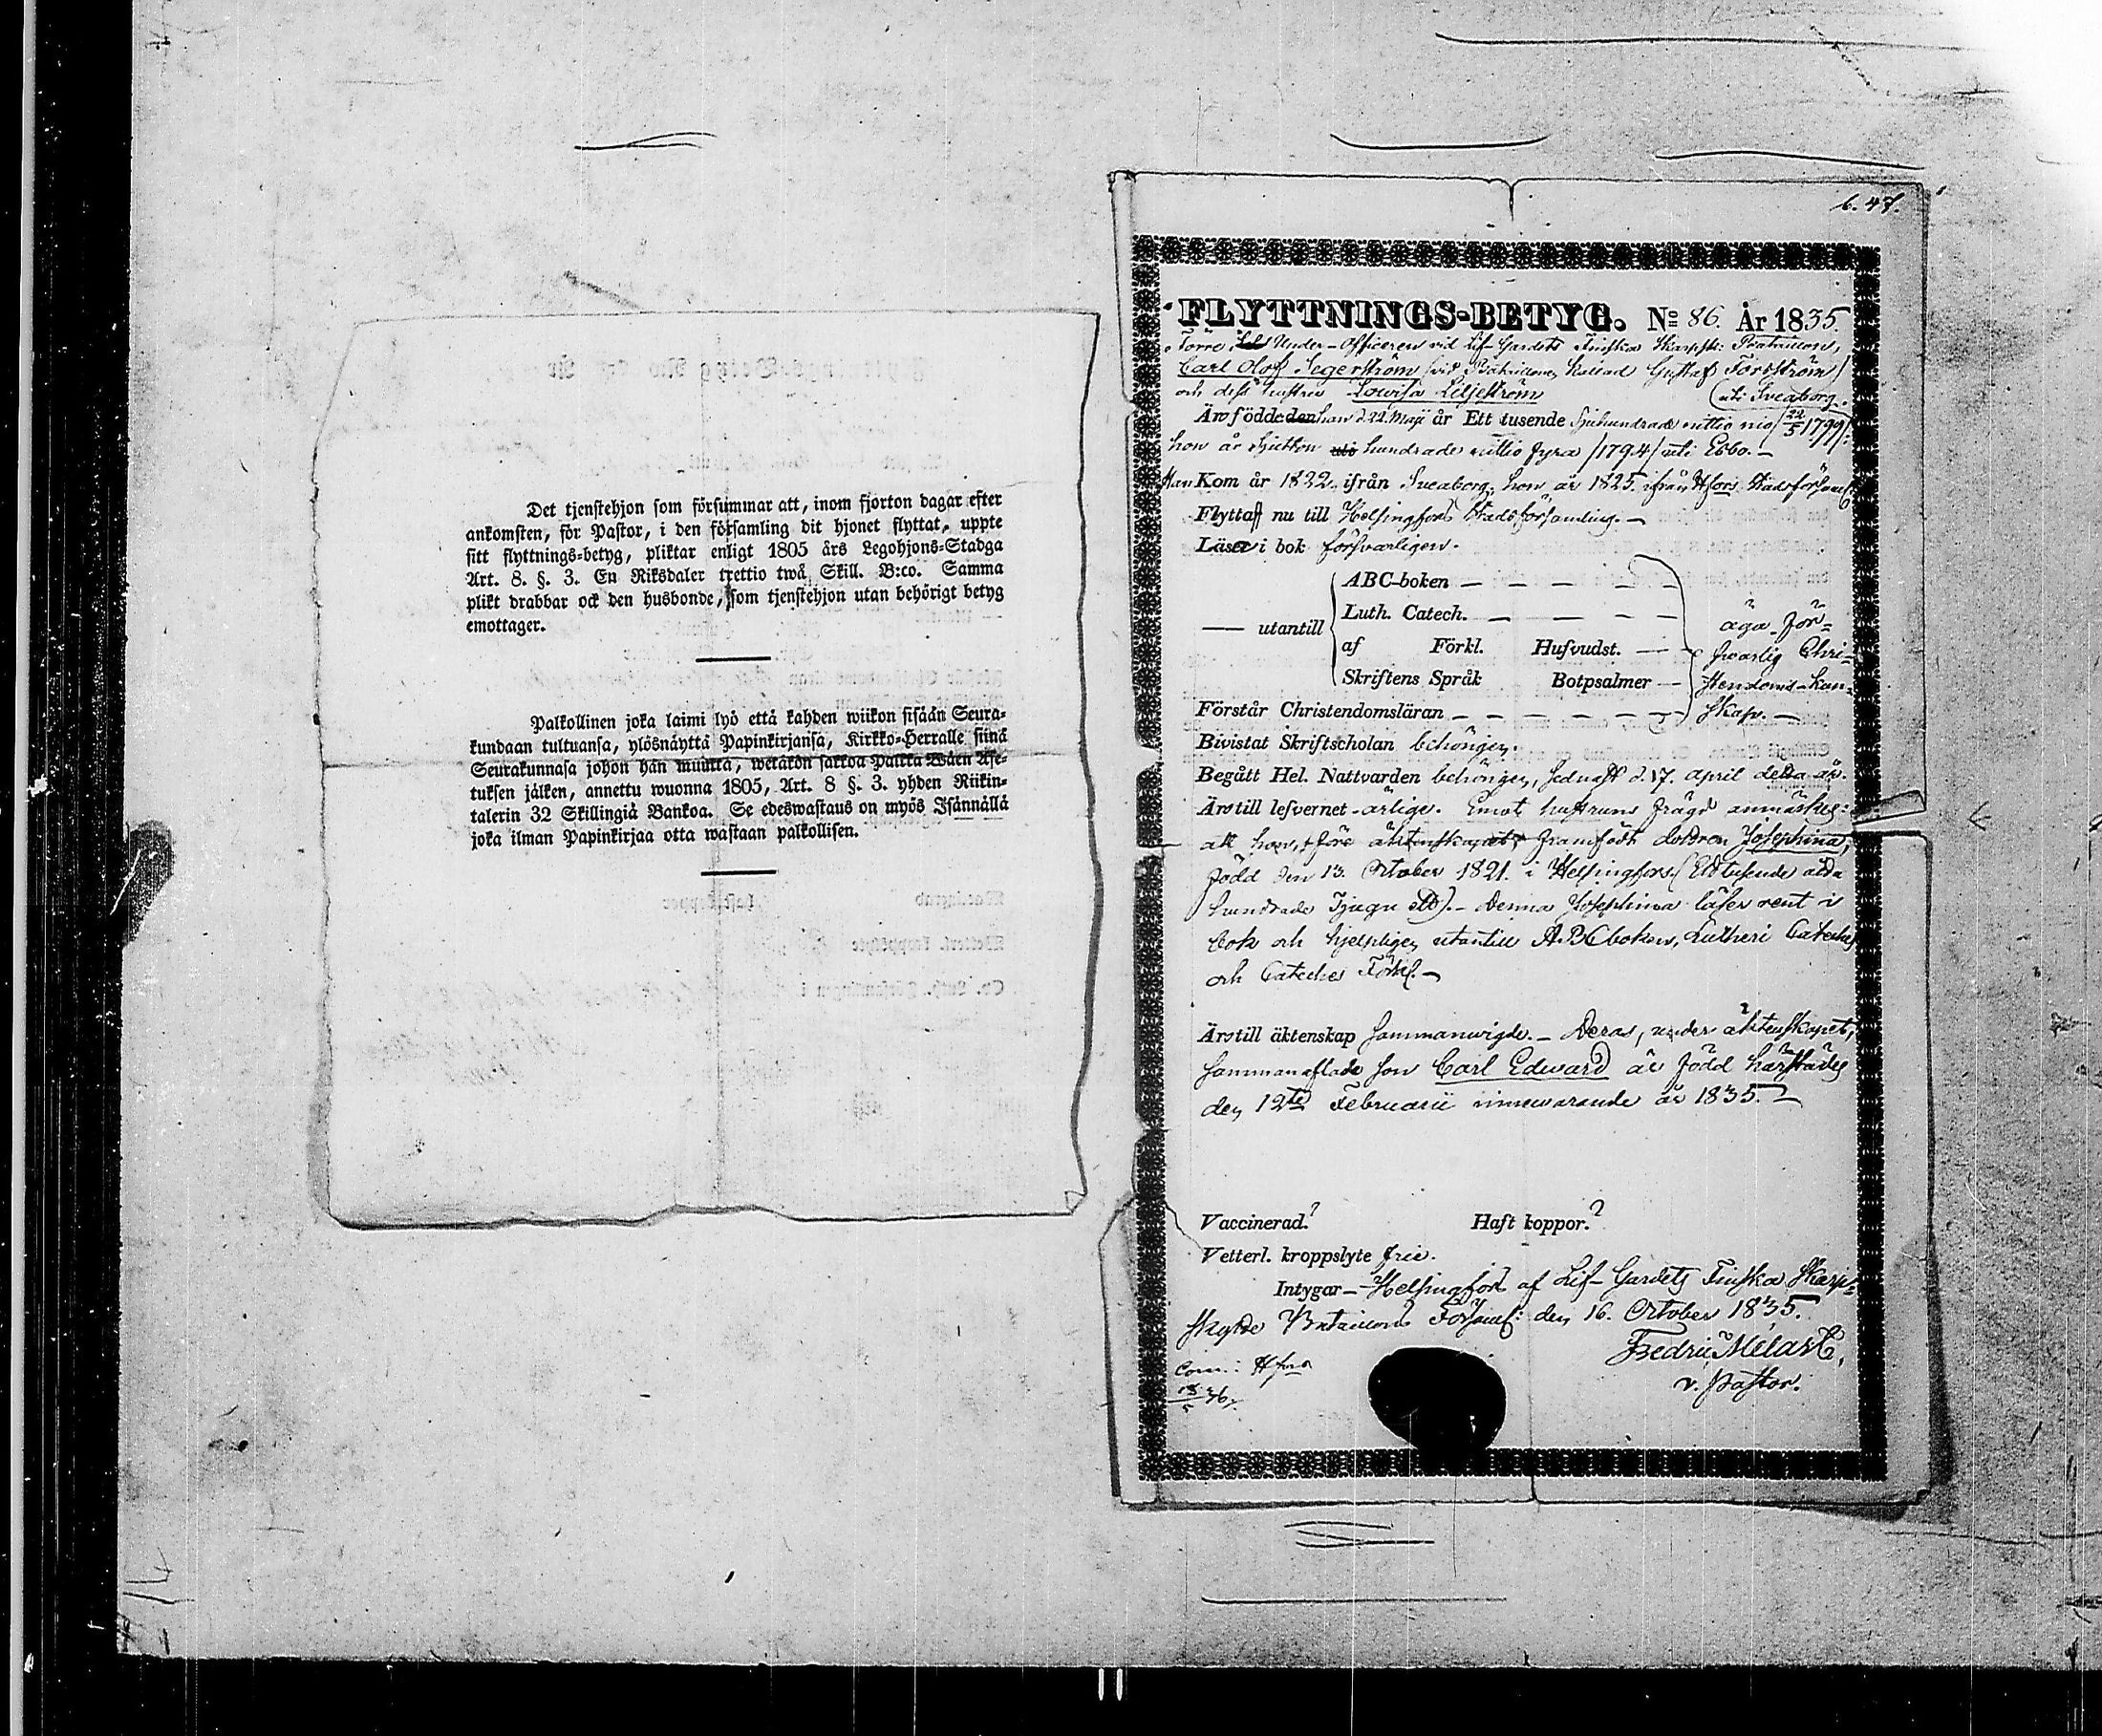 Det tjenstehjon som försummar att, inom fjorton dagar efter
ankomsten, för Pastor, i den församling dit hjonet flyttat, uppte
sitt flyttnings-betyg, pliktar enligt 1805 års Legohjons-Stadga
Art. 8. §. 3. En Riksdaler trettio twå Skill. B:co. Samma
plikt drabbar ock den husbonde, som tjenstehjon utan behörigt betyg
emottager.
Palkollinen joka laimi lyö että kahden wiikon sisään Seura-
kundaan tultuansa, ylösnäyttä Papinkirjansa, Kirkko-Herralle siinä
Seurakunnasa johon hän muutta, wetäkön sakkoa Palkka Wäen Ase-
tuksen jälken, annettu wuonna 1805, Art. 8 §. 3. yhden Riikin-
talerin 32 Skillingiä Bankoa. Se edeswastaus on myös Isännällä
joka ilman Papinkirjaa otta wastaan palkollisen.
b. 47.
FLYTTNINGS-BETYG. No 86. År 1835.
Förre Under-Officeren vid Lif-Gardets Finska Skarpsk: Bataillon,
Carl Olof Segerström /vid Bataillonen kallad Gustaf Forsström/
och dess hustru Lovisa Liljeström
uti Sveaborg.
Äro födde han d. 22 Maji år Ett tusende Sjuhundrade nittio nio /22/5 1799/:
hon år Sjutton hundrade nittio fyra /1794/ uti Esbo. –
Han Kom år 1822 ifrån Sveaborg; hon år 1825 ifrån Hfors Stadsförsaml:
Flytta nu till Helsingfors Stadsförsamling. –
Läsa i bok försvarligen.
ABC-boken – – – –
Luth. Catech. – – – –
— utantill
af Förkl. Hufvudst. – –
Skriftens Språk Botpsalmer –
äga för=
svarlig Chri=
stendoms-kun=
skap. –
Förstår Christendomsläran – – – – – –
Bivistat Skriftscholan behörigen.
Begått Hel. Nattvarden behörigen, sednast d. 17. April detta år.
Äro till lefvernet ärlige. Emot hustruns frägd anmärkes:
att hon, före äktenskapet, framfödt dottren Josephina,
född den 13. October 1821. i Helsingfors (Ett tusende åtta
hundrade Tjugu ett). – Denna Josephina läser rent i
bok och hjelpligen utantill A.B.C.boken, Lutheri Cateches
och Cateches Förkl. –
Äro till äktenskap sammanvigde. – Deras, under äktenskapet,
sammanaflade son Carl Edward är född härstädes
den 12te Februarii innevarande år 1835. –
Vaccinerad? Haft koppor?
Vetterl. kroppslyte frie.
Intygar – Helsingfors af Lif-Gardets Finska Skarp=
skytte Bataillons Församl: den 16. October 1835.
Fredric Melart,
v. Pastor.